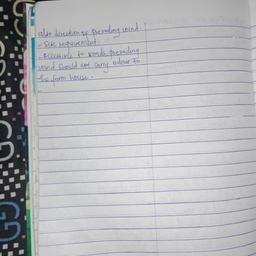 also direction of prevailing wind.
- Size requirement.
- Accessible to roads prevailing
wind should not carry odour to
the farm house.